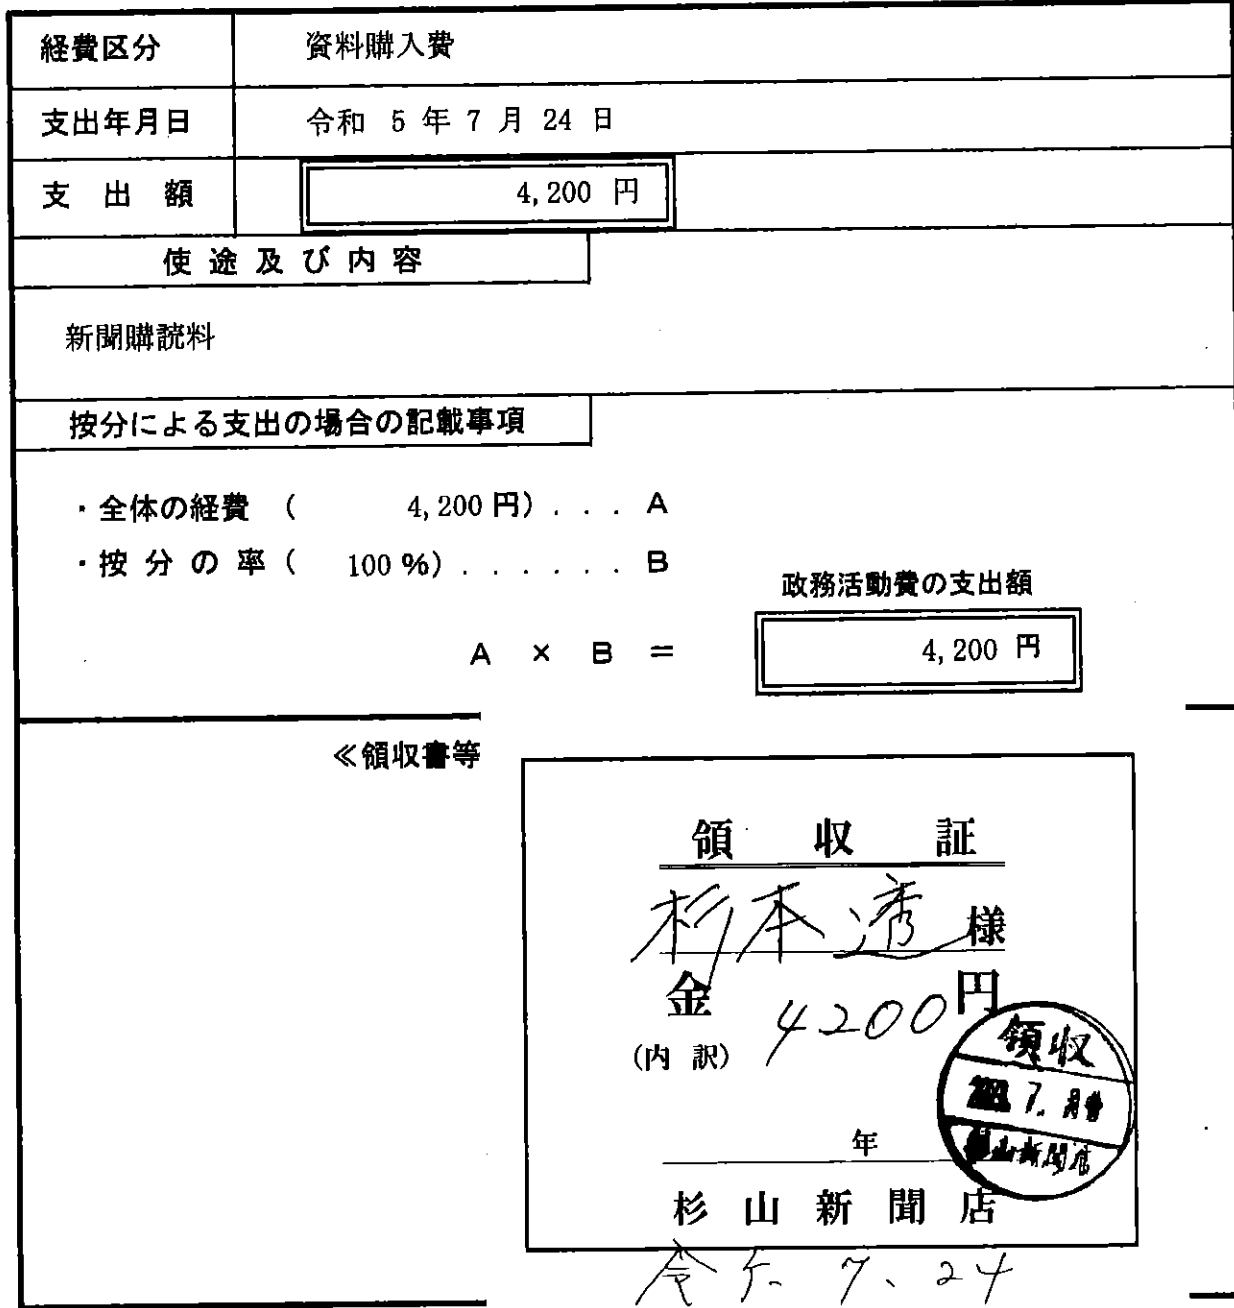 経費区分 資料購入費
支出年月日 令和 5 年 7 月 24 日
支出額 4,200 円
使途及び内容
新聞購読料
按分による支出の場合の記載事項
・全体の経費 ( 4,200 円) . . . A
・按分の率 ( 100 %) . . . . . . B
政務活動費の支出額
A × B = 4,200 円
≪領収書等
領収証
杉本透 様
金 4200 円
(内訳)
領収
7.
山新聞店
年
杉山新聞店
令5.7、24